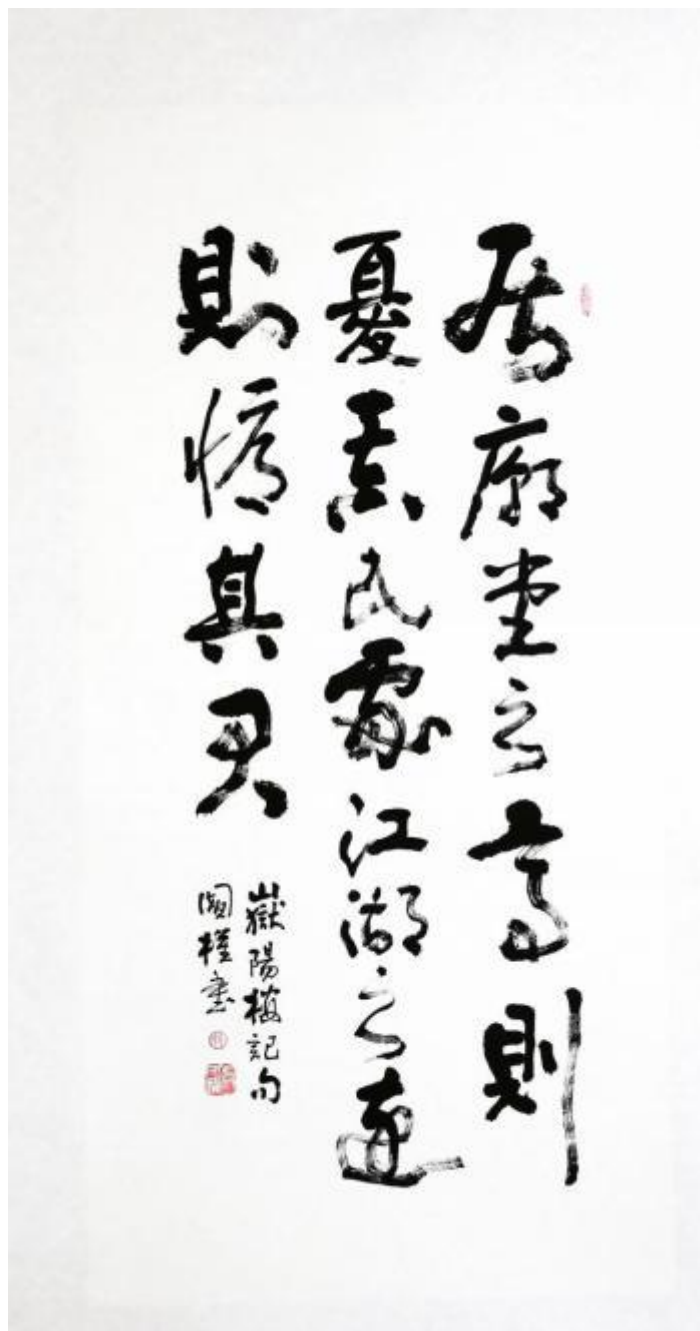 居廟堂之高則
憂其民處江湖之遠
則懮其君
嶽陽樓記句
國權書